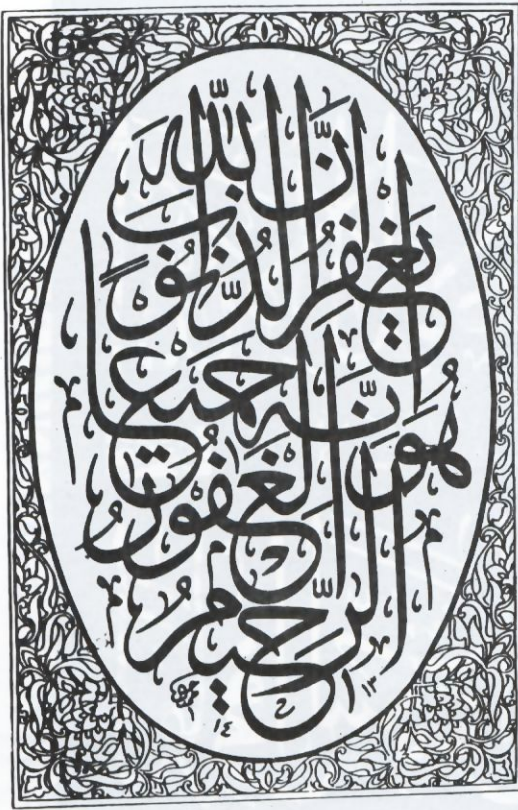 إِنَّ اللَّهَ
يَغْفِرُ الذُّنُوبَ
جَمِيعًا إِنَّهُ
هُوَ الْغَفُورُ
الرَّحِيمُ